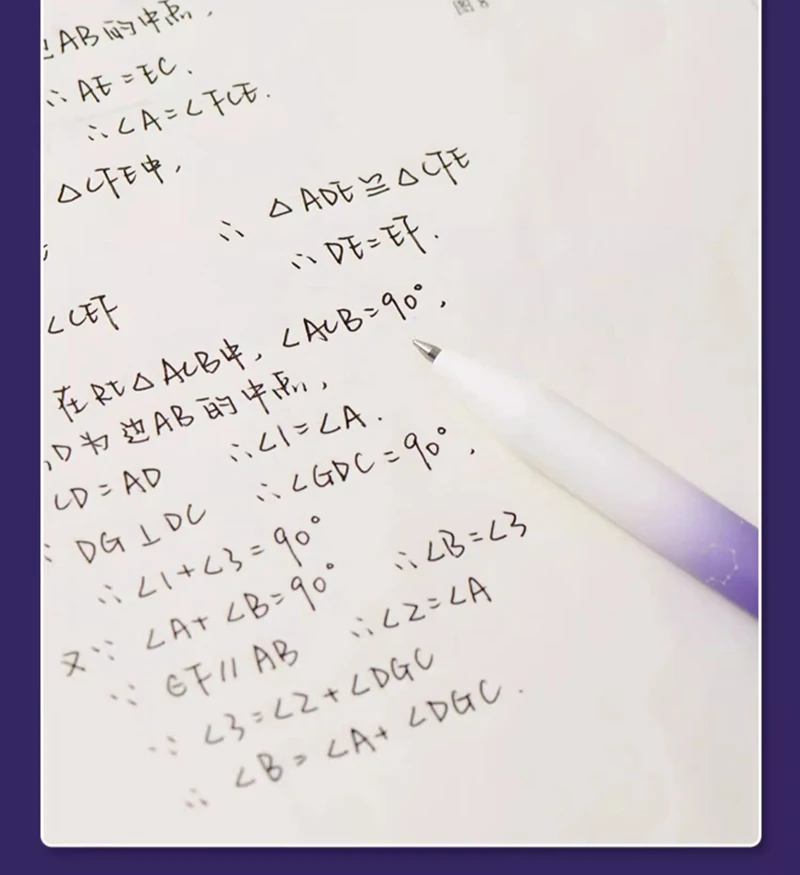 图8
AB的中点.
∴AE=EC.
∴∠A=∠FCE.
△CFE中,
∴ △ADE≌△CFE
∴DE=EF.
∠CEF
在Rt△ACB中,∠ACB=90°,
D为边AB的中点,
CD=AD ∴∠1=∠A.
DG⊥DC ∴∠GDC=90°.
∴∠1+∠3=90°
又∵ ∠A+∠B=90° ∴∠B=∠3
∵ GF∥AB ∴∠2=∠A
∵ ∠3=∠2+∠DGC
∴ ∠B=∠A+∠DGC.